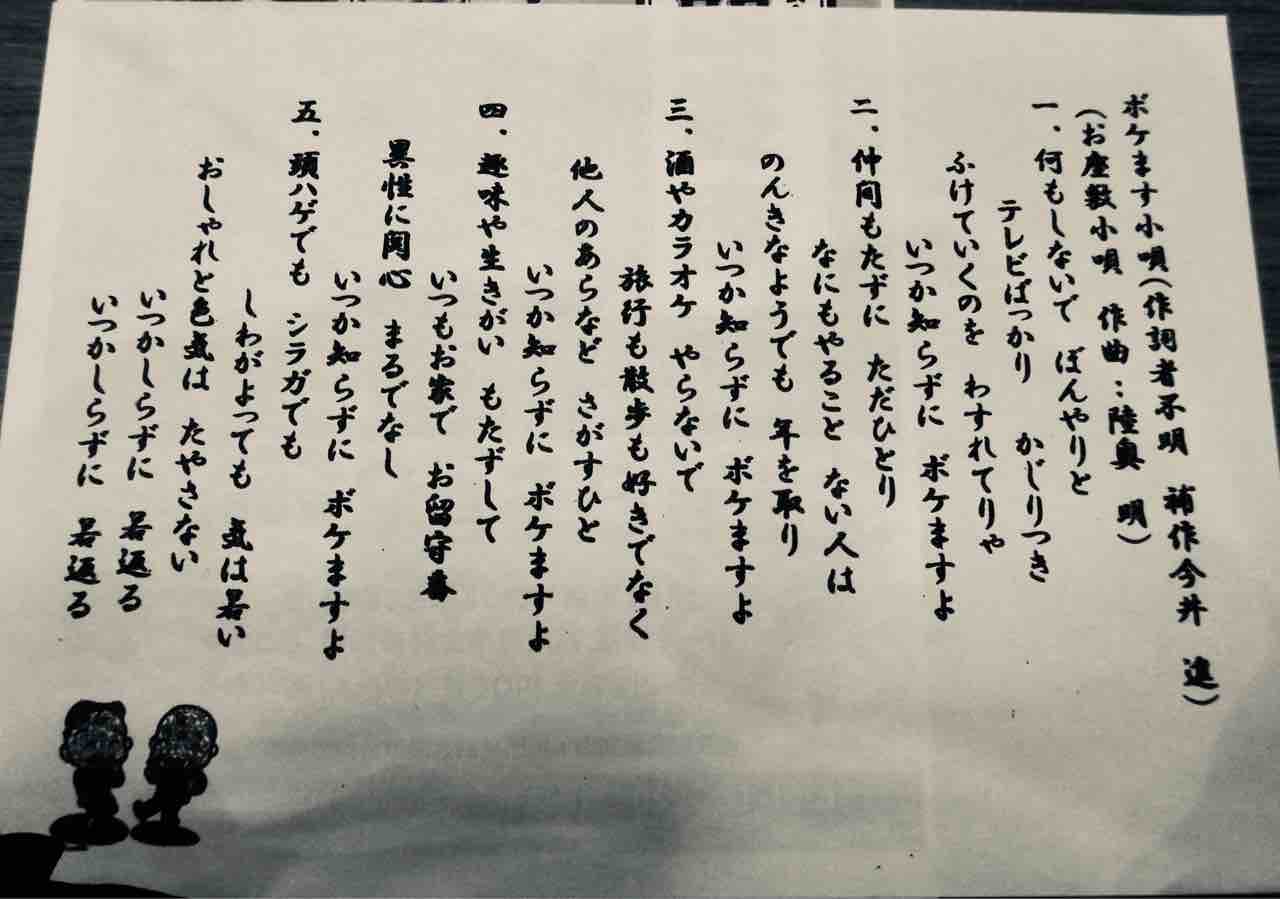 ボケます小唄(作詞者不明　補作今井　進)
(お座敷小唄　作曲：陸奥　明)
一、何もしないで　ぼんやりと
テレビばっかり　かじりつき
ふけていくのを　わすれてりゃ
いつか知らずに　ボケますよ
二、仲間もたずに　ただひとり
なにもやること　ない人は
のんきなようでも　年を取り
いつか知らずに　ボケますよ
三、酒やカラオケ　やらないで
旅行も散歩も好きでなく
他人のあらなど　さがすひと
いつか知らずに　ボケますよ
四、趣味や生きがい　もたずして
いつもお家で　お留守番
異性に関心　まるでなし
いつか知らずに　ボケますよ
五、頭ハゲでも　シラガでも
しわがよっても　気は若い
おしゃれと色気は　たやさない
いつかしらずに　若返る
いつかしらずに　若返る